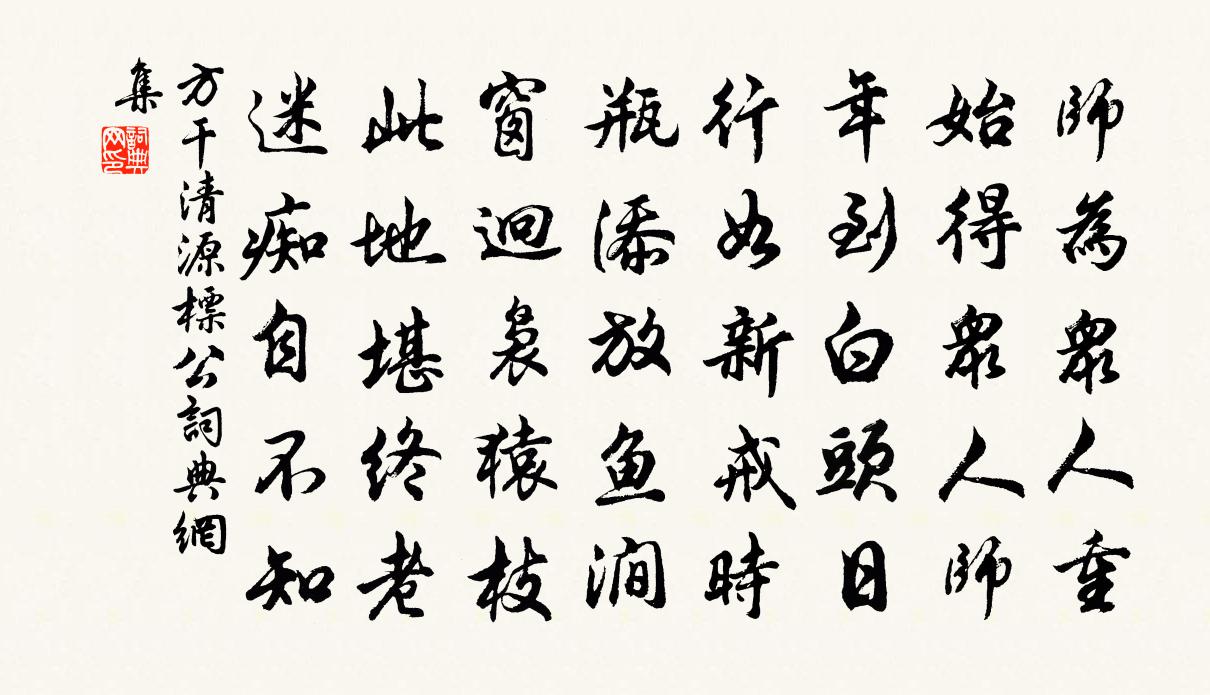 師為眾人重
始得眾人師
年到白頭日
行如新戒時
瓶添放魚澗
窗迴裊猿枝
此地堪終老
迷痴自不知
方干清源標公詞典網
集
詞典
网印